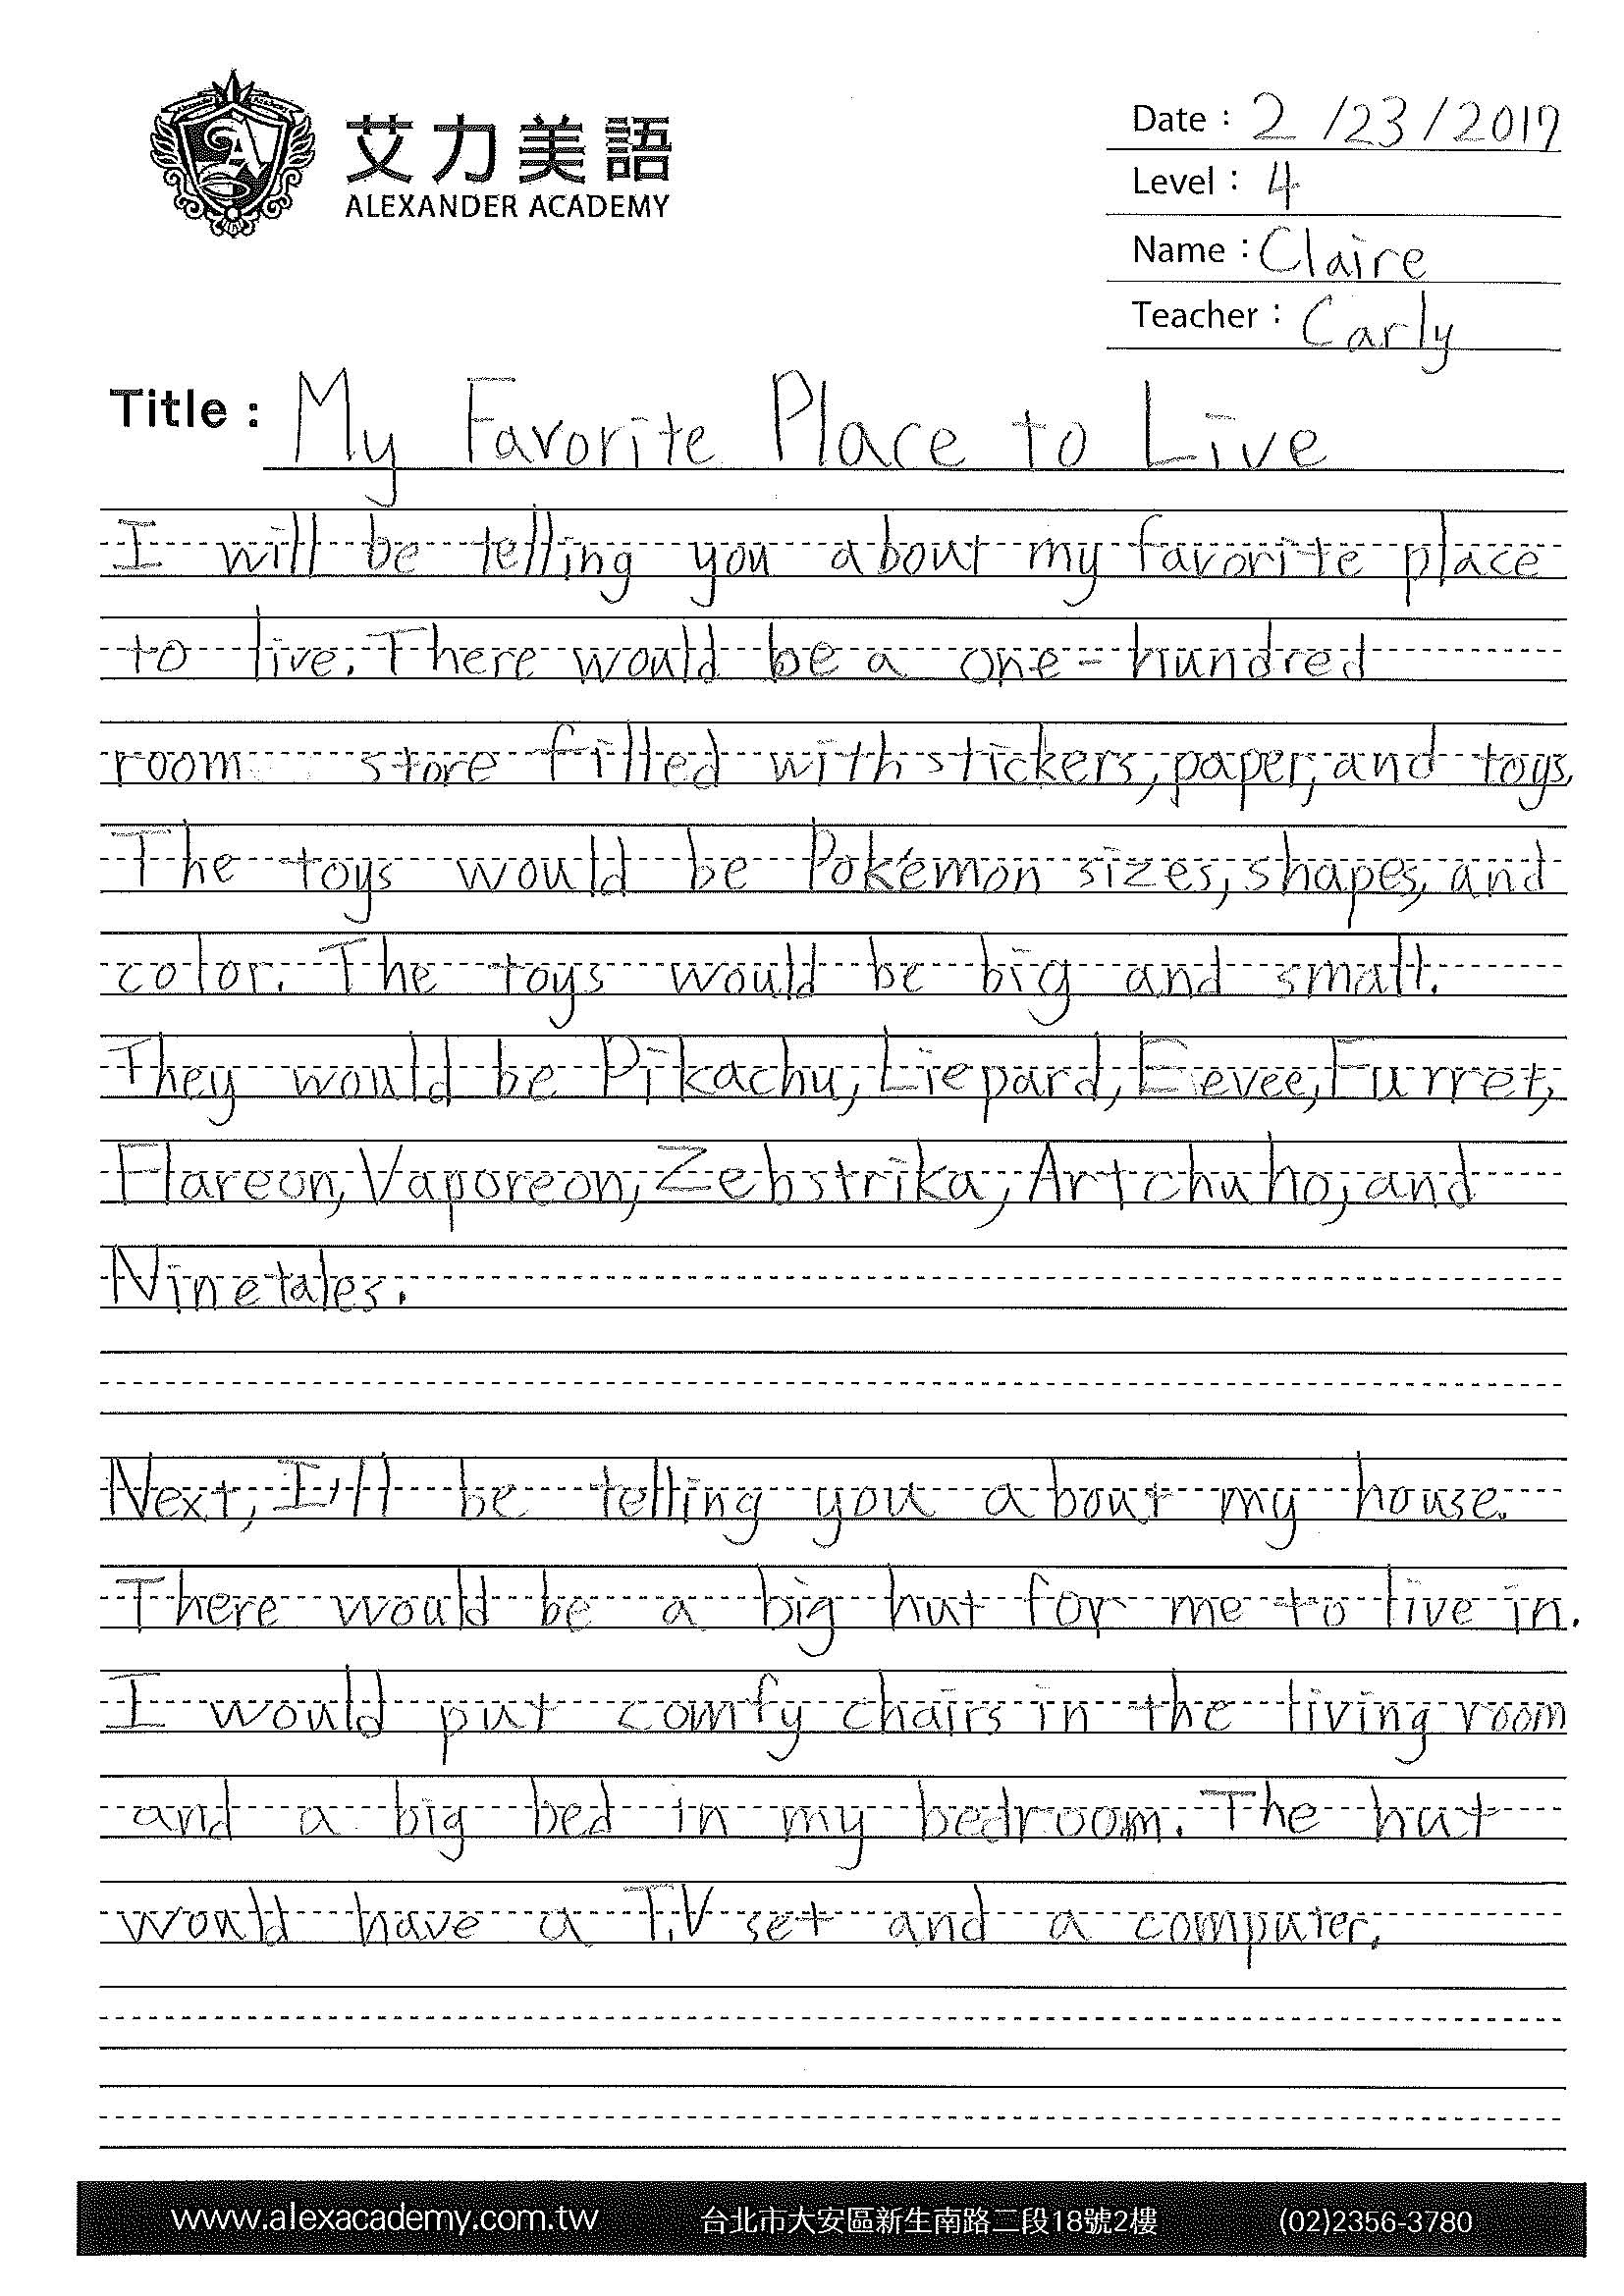 艾力美語
ALEXANDER ACADEMY
Date : 2/23/2017
Level : 4
Name : Claire
Teacher : Carly
Title : My Favorite Place to Live
I will be telling you about my favorite place
to live. There would be a one-hundred
room store filled with stickers, paper, and toys.
The toys would be Pokémon sizes, shapes, and
color. The toys would be big and small.
They would be Pikachu, Liepard, Eevee, Furret,
Flareon, Vaporeon, Zebstrika, Artchuho, and
Ninetales.
Next, I'll be telling you about my house.
There would be a big hut for me to live in.
I would put comfy chairs in the living room
and a big bed in my bedroom. The hut
would have a T.V set and a computer.
www.alexacademy.com.tw 台北市大安區新生南路二段18號2樓 (02)2356-3780